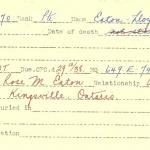 70 Rank Pte. Name Eaton, Lloy
Date of death not stated
Dum. CFC. d 29 38. HQ 649-E-
Rose M. Eaton Relationship
Kingsville, Ontario.
uried in
ation